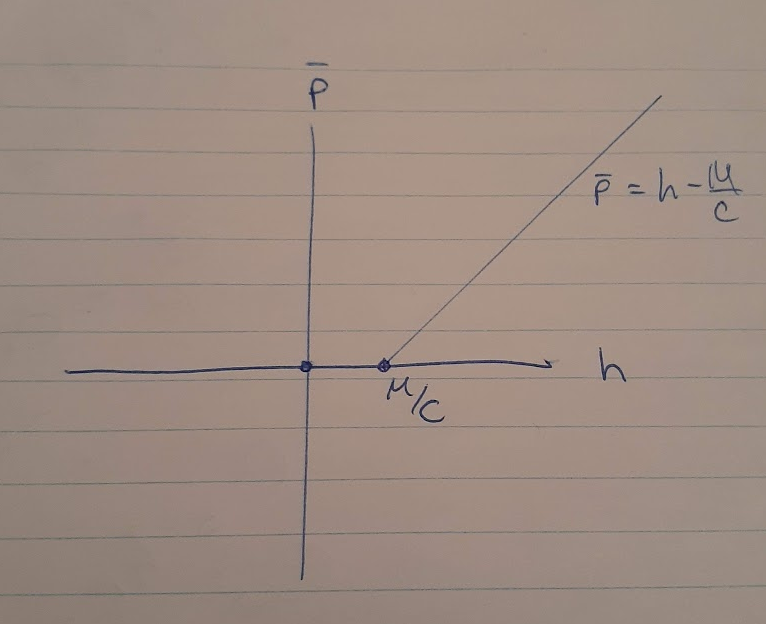 p̄
p̄ = h - μ/c
h
μ/c